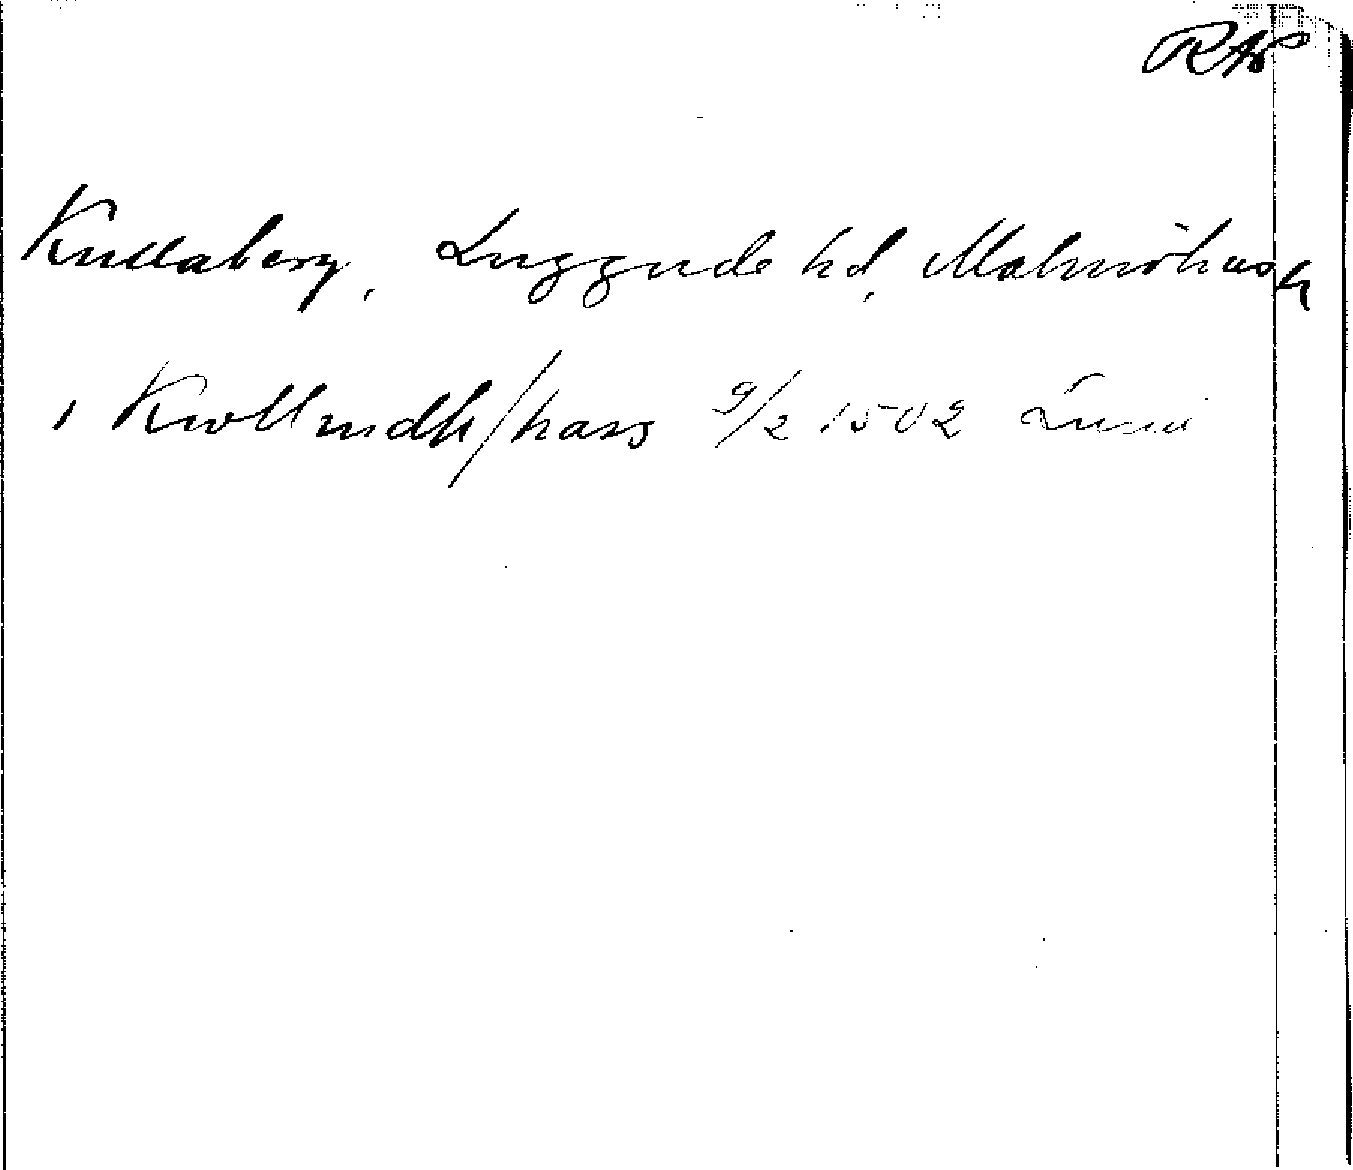 RAP
Kullaberg, Luggude hd, Malmöhus l
1 Kwllmdh/hass 9/2 1502 Lund